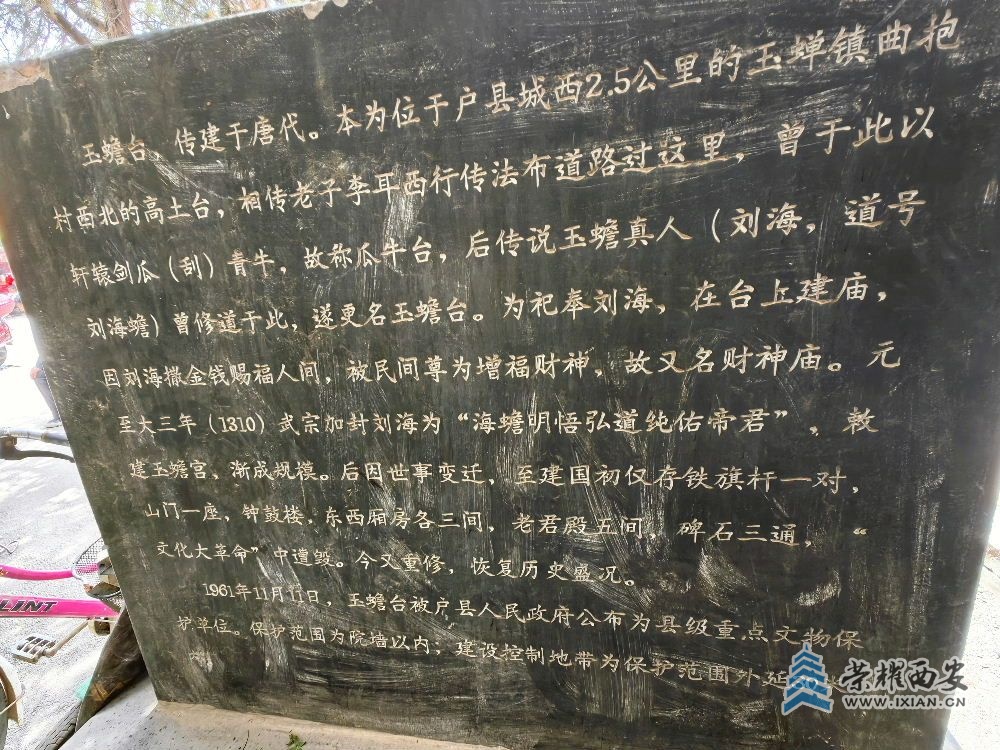 玉蟾台、传建于唐代。本为位于户县城西2.5公里的玉蝉镇曲抱
村西北的高土台，相传老子李耳西行传法布道路过这里，曾于此以
轩辕剑瓜（刮）青牛，故称瓜牛台，后传说玉蟾真人（刘海，道号
刘海蟾）曾修道于此，遂更名玉蟾台。为祀奉刘海，在台上建庙，
因刘海撒金钱赐福人间，被民间尊为增福财神，故又名财神庙。元
至大三年（1310）武宗加封刘海为“海蟾明悟弘道纯佑帝君”，敕
建玉蟾宫，渐成规模。后因世事变迁，至建国初仅存铁旗杆一对，
山门一座，钟鼓楼，东西厢房各三间，老君殿五间，碑石三通，“
文化大革命”中遭毁。今又重修，恢复历史盛况。
1961年11月11日，玉蟾台被户县人民政府公布为县级重点文物保
护单位。保护范围为院墙以内；建设控制地带为保护范围外延
LINT
荣耀西安
WWW.IXIAN.CN